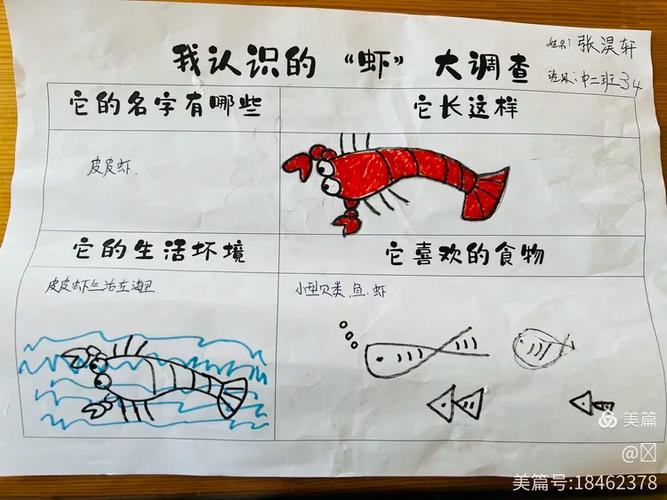 我认识的“虾”大调查
姓名:张淏轩
班级:中二班34
它的名字有哪些
它长这样
皮皮虾
它的生活环境
它喜欢的食物
皮皮虾生活在海里
小型贝类、鱼、虾
美篇
@
美篇号:18462378